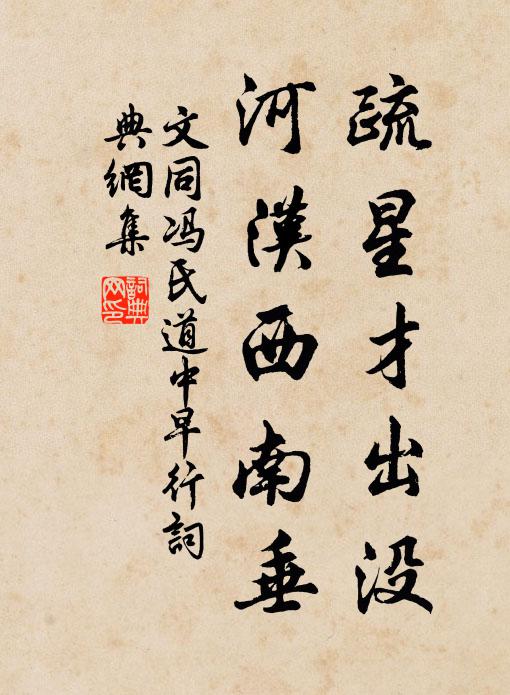 疏星才出没
河漢西南垂
文同冯氏道中早行詞
典網集
詞典网印